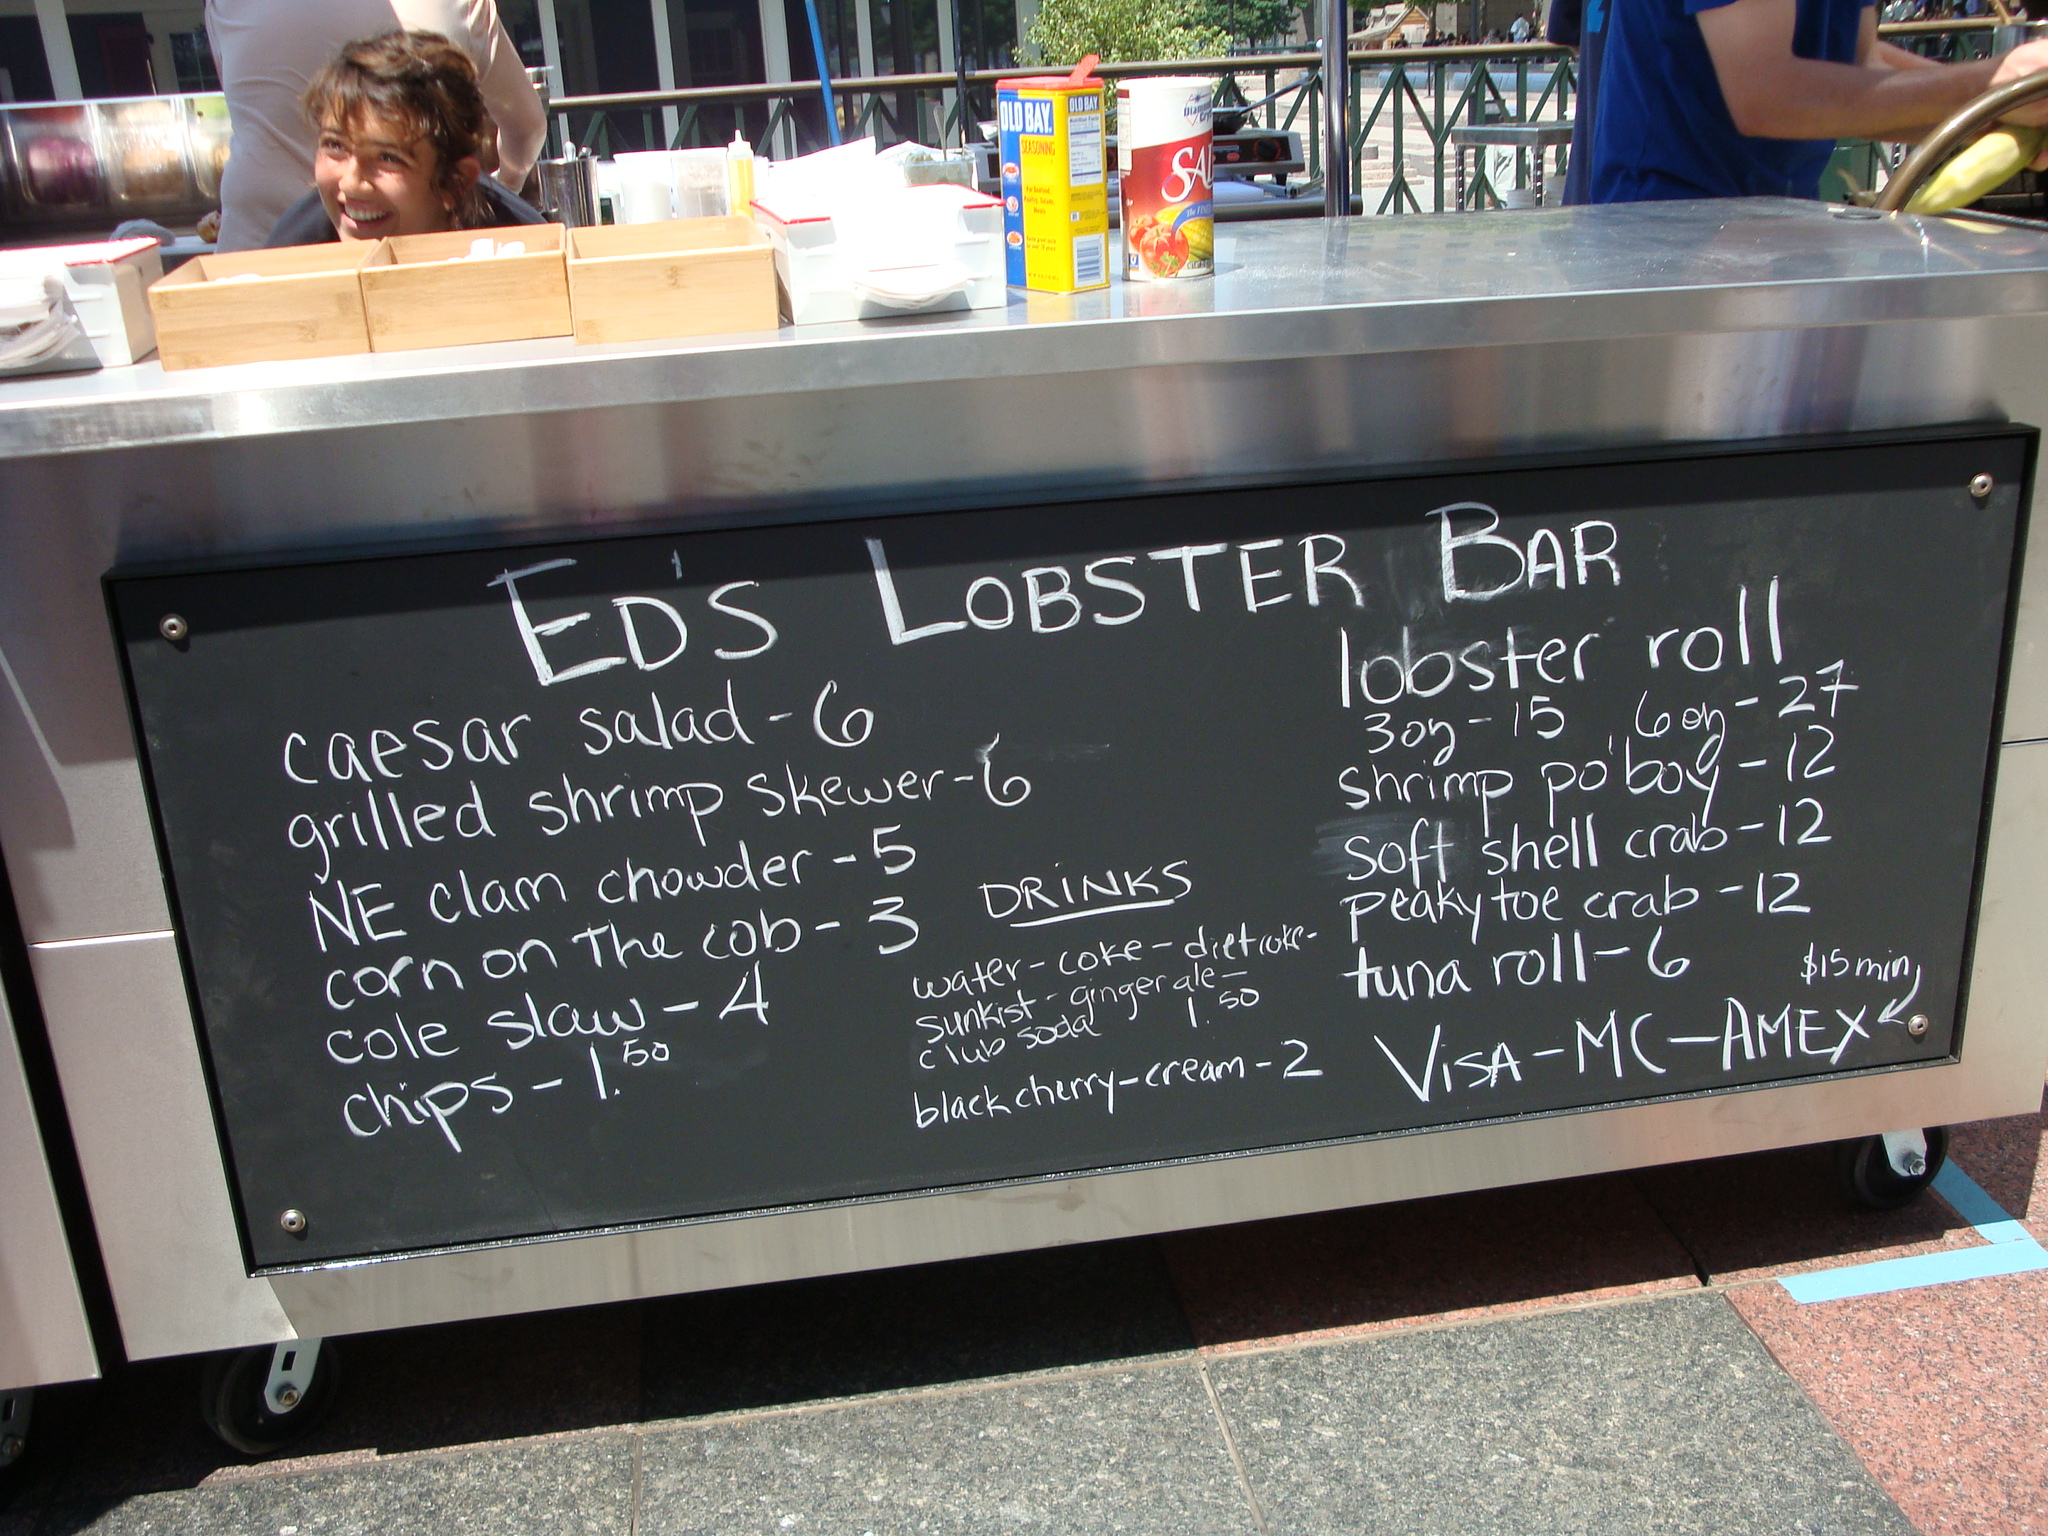 OLD BAY.
SEASONING
OLD BAY
ED'S LOBSTER BAR
caesar salad - 6
grilled shrimp skewer - 6
NE clam chowder - 5
corn on The cob - 3
cole slaw - 4
chips - 1.50
DRINKS
water - coke - diet coke -
sunkist - ginger ale -
club soda 1.50
black cherry - cream - 2
lobster roll
3oz - 15 6oz - 27
shrimp po'boy - 12
soft shell crab - 12
peaky toe crab - 12
tuna roll - 6
$15 min
VISA - MC - AMEX